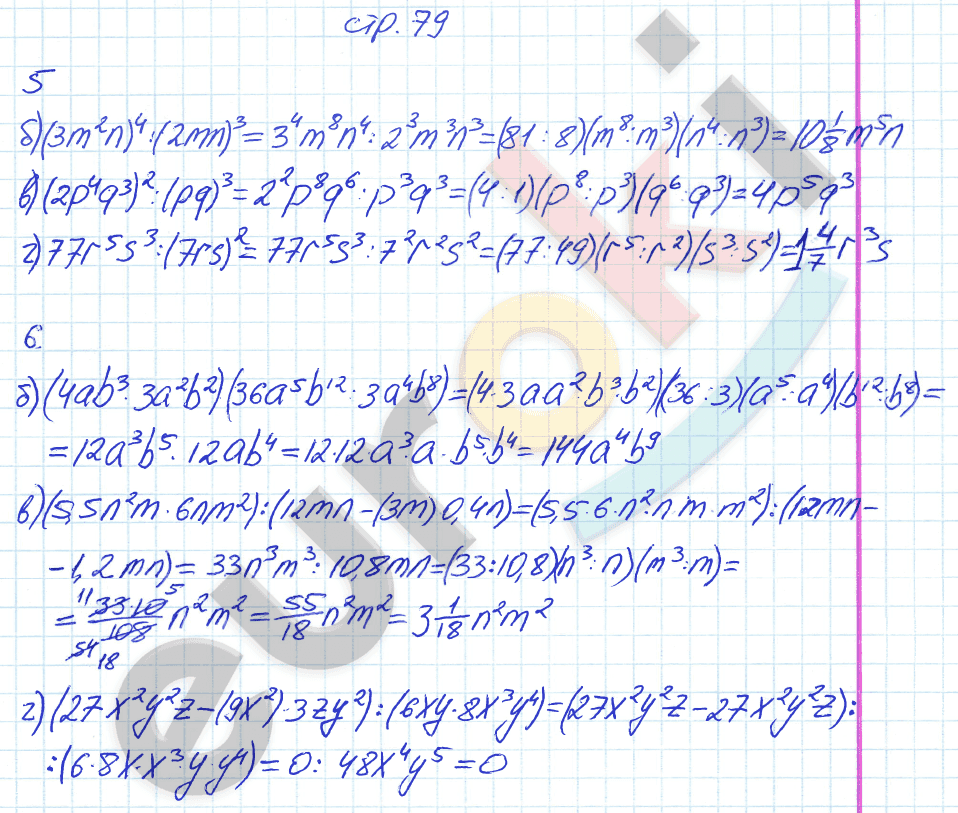 стр. 79
5
б) (3m²n)⁴ : (2mn)³ = 3⁴m⁸n⁴ : 2³m³n³ = (81 : 8)(m⁸ : m³)(n⁴ : n³) = 10 1/8 m⁵n
в) (2p⁴q³)² : (pq)³ = 2²p⁸q⁶ : p³q³ = (4 : 1)(p⁸ : p³)(q⁶ : q³) = 4p⁵q³
г) 77r⁵s³ : (7rs)² = 77r⁵s³ : 7²r²s² = (77 : 49)(r⁵ : r²)(s³ : s²) = 1 4/7 r³s
6
б) (4ab³ · 3a²b²)(36a⁵b¹² : 3a⁴b⁸) = (4·3aa²·b³·b²)(36 : 3)(a⁵ : a⁴)(b¹² : b⁸) =
= 12a³b⁵ · 12ab⁴ = 12·12·a³·a·b⁵·b⁴ = 144a⁴b⁹
в) (5,5n²m · 6nm²) : (12mn - (3m) 0,4n) = (5,5·6·n²·n m·m²) : (12mn -
- 1,2mn) = 33n³m³ : 10,8mn = (33 : 10,8)(n³ : n)(m³ : m) =
= 11 33·10 5 / 54 108 18 n²m² = 55/18 n²m² = 3 1/18 n²m²
г) (27x²y²z - (9x²)·3zy²) : (6xy·8x³y⁴) = (27x²y²z - 27x²y²z) :
: (6·8x·x³y·y⁴) = 0 : 48x⁴y⁵ = 0
euroki